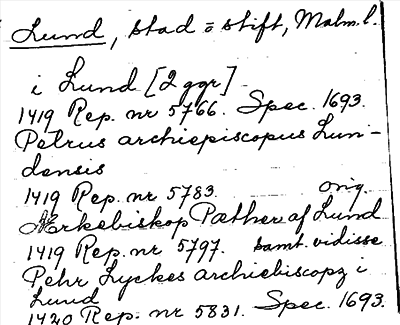 Lund, stad o stift, Malm. l.
i Lund [2 ggr].
1419 Rep. nr 5766. Spec. 1693.
Petrus archiepiscopus Lun-
densis
1419 Rep. nr 5783. orig.
Ærkebiskop Pæther af Lund
1419 Rep. nr 5797. samt. vidisse
Pehr Lyckes archiebiscopz i
Lund
1420 Rep. nr 5831. Spec. 1693.